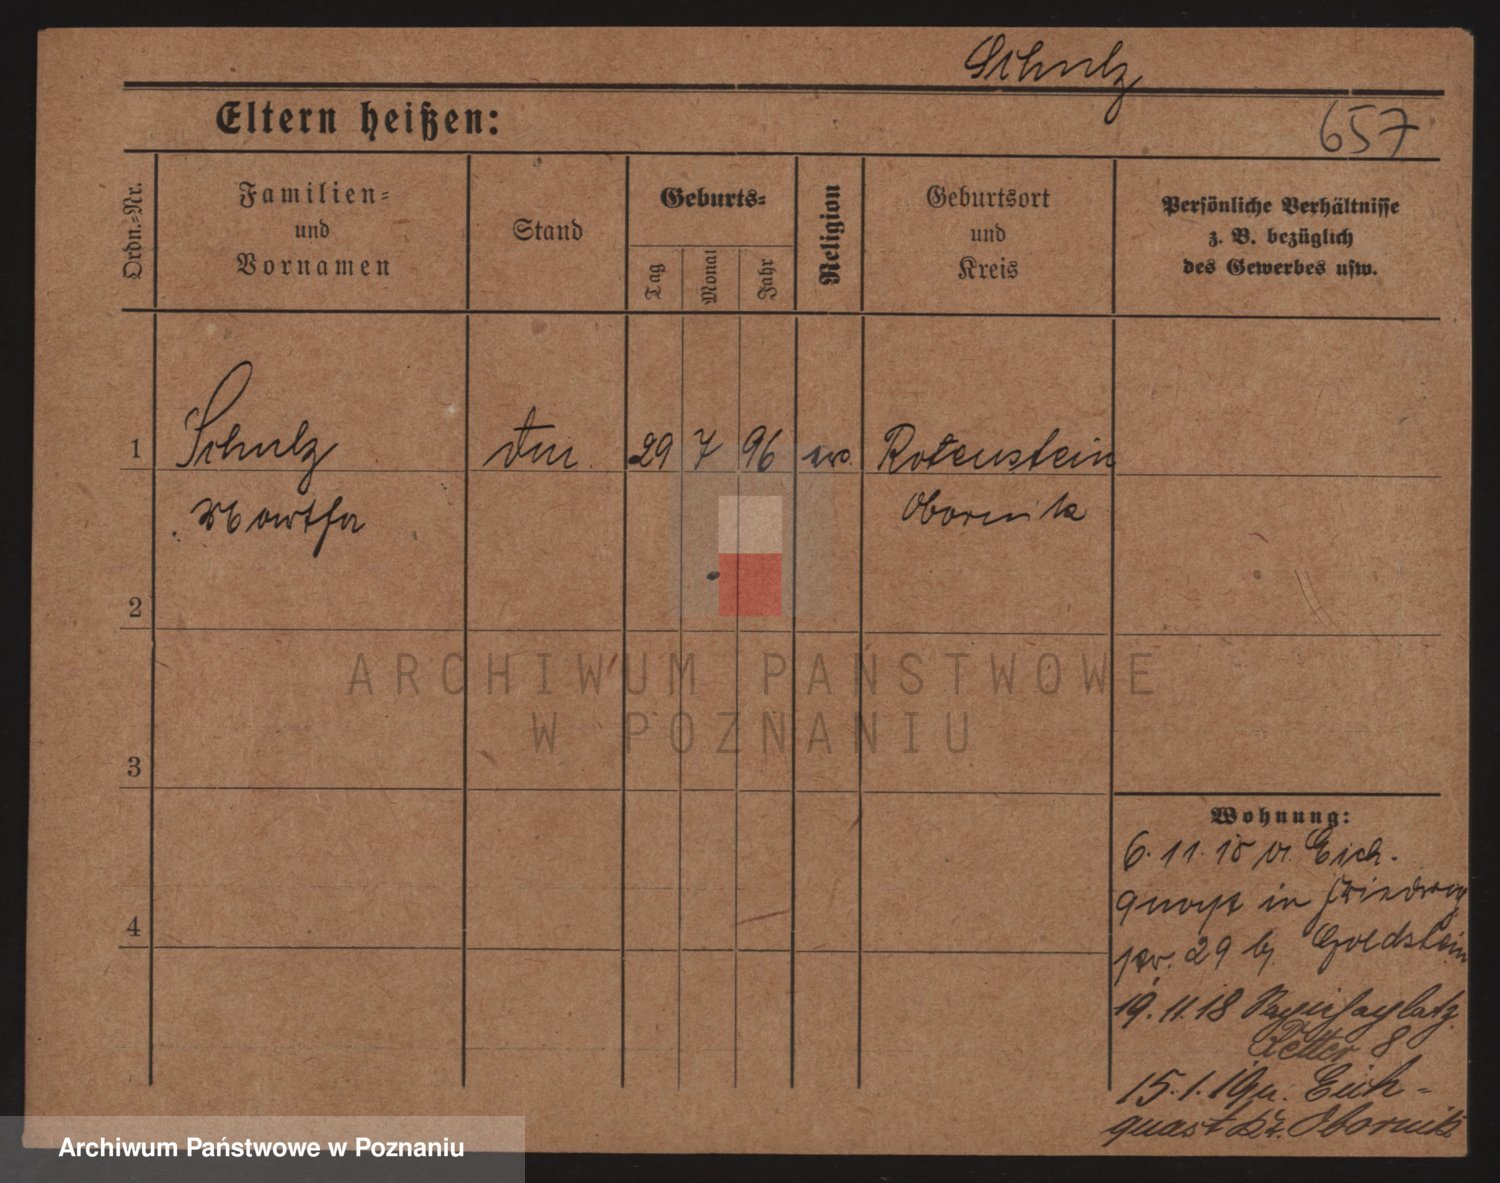 Schulz
Eltern heißen:
657
Ordn.-Nr.
Familien-
und
Vornamen
Stand
Geburts-
Tag
Monat
Jahr
Religion
Geburtsort
und
Kreis
Persönliche Verhältnisse
z. B. bezüglich
des Gewerbes usw.
1
Schulz
29 7 96
Rotenstein
Martha
Obornik
2
ARCHIWUM PAŃSTWOWE
W POZNANIU
3
Wohnung:
6.11.18 v. Eich-
quast in
29 bj. Goldstein
4
19.11.18
Retter 8
15.1.19 n. Eich-
quast Kr. Obornik
Archiwum Państwowe w Poznaniu